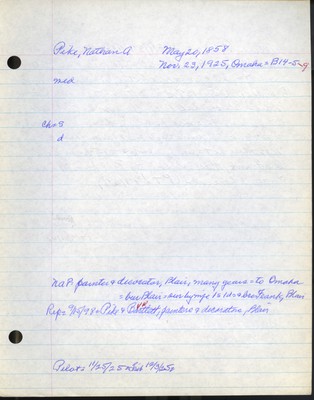 Pike, Nathan A May 20, 1858
Nov. 23, 1925, Omaha = B14-5-9
med
ch = S
d
NAP painter & decorator, Blair, many years = to Omaha
= bur Blair = sur by mps 1s 1d & bro Frank, Blair
Rep = Pike & Bartlett, painters & decorators, Blair
Pilot = 11/25/25